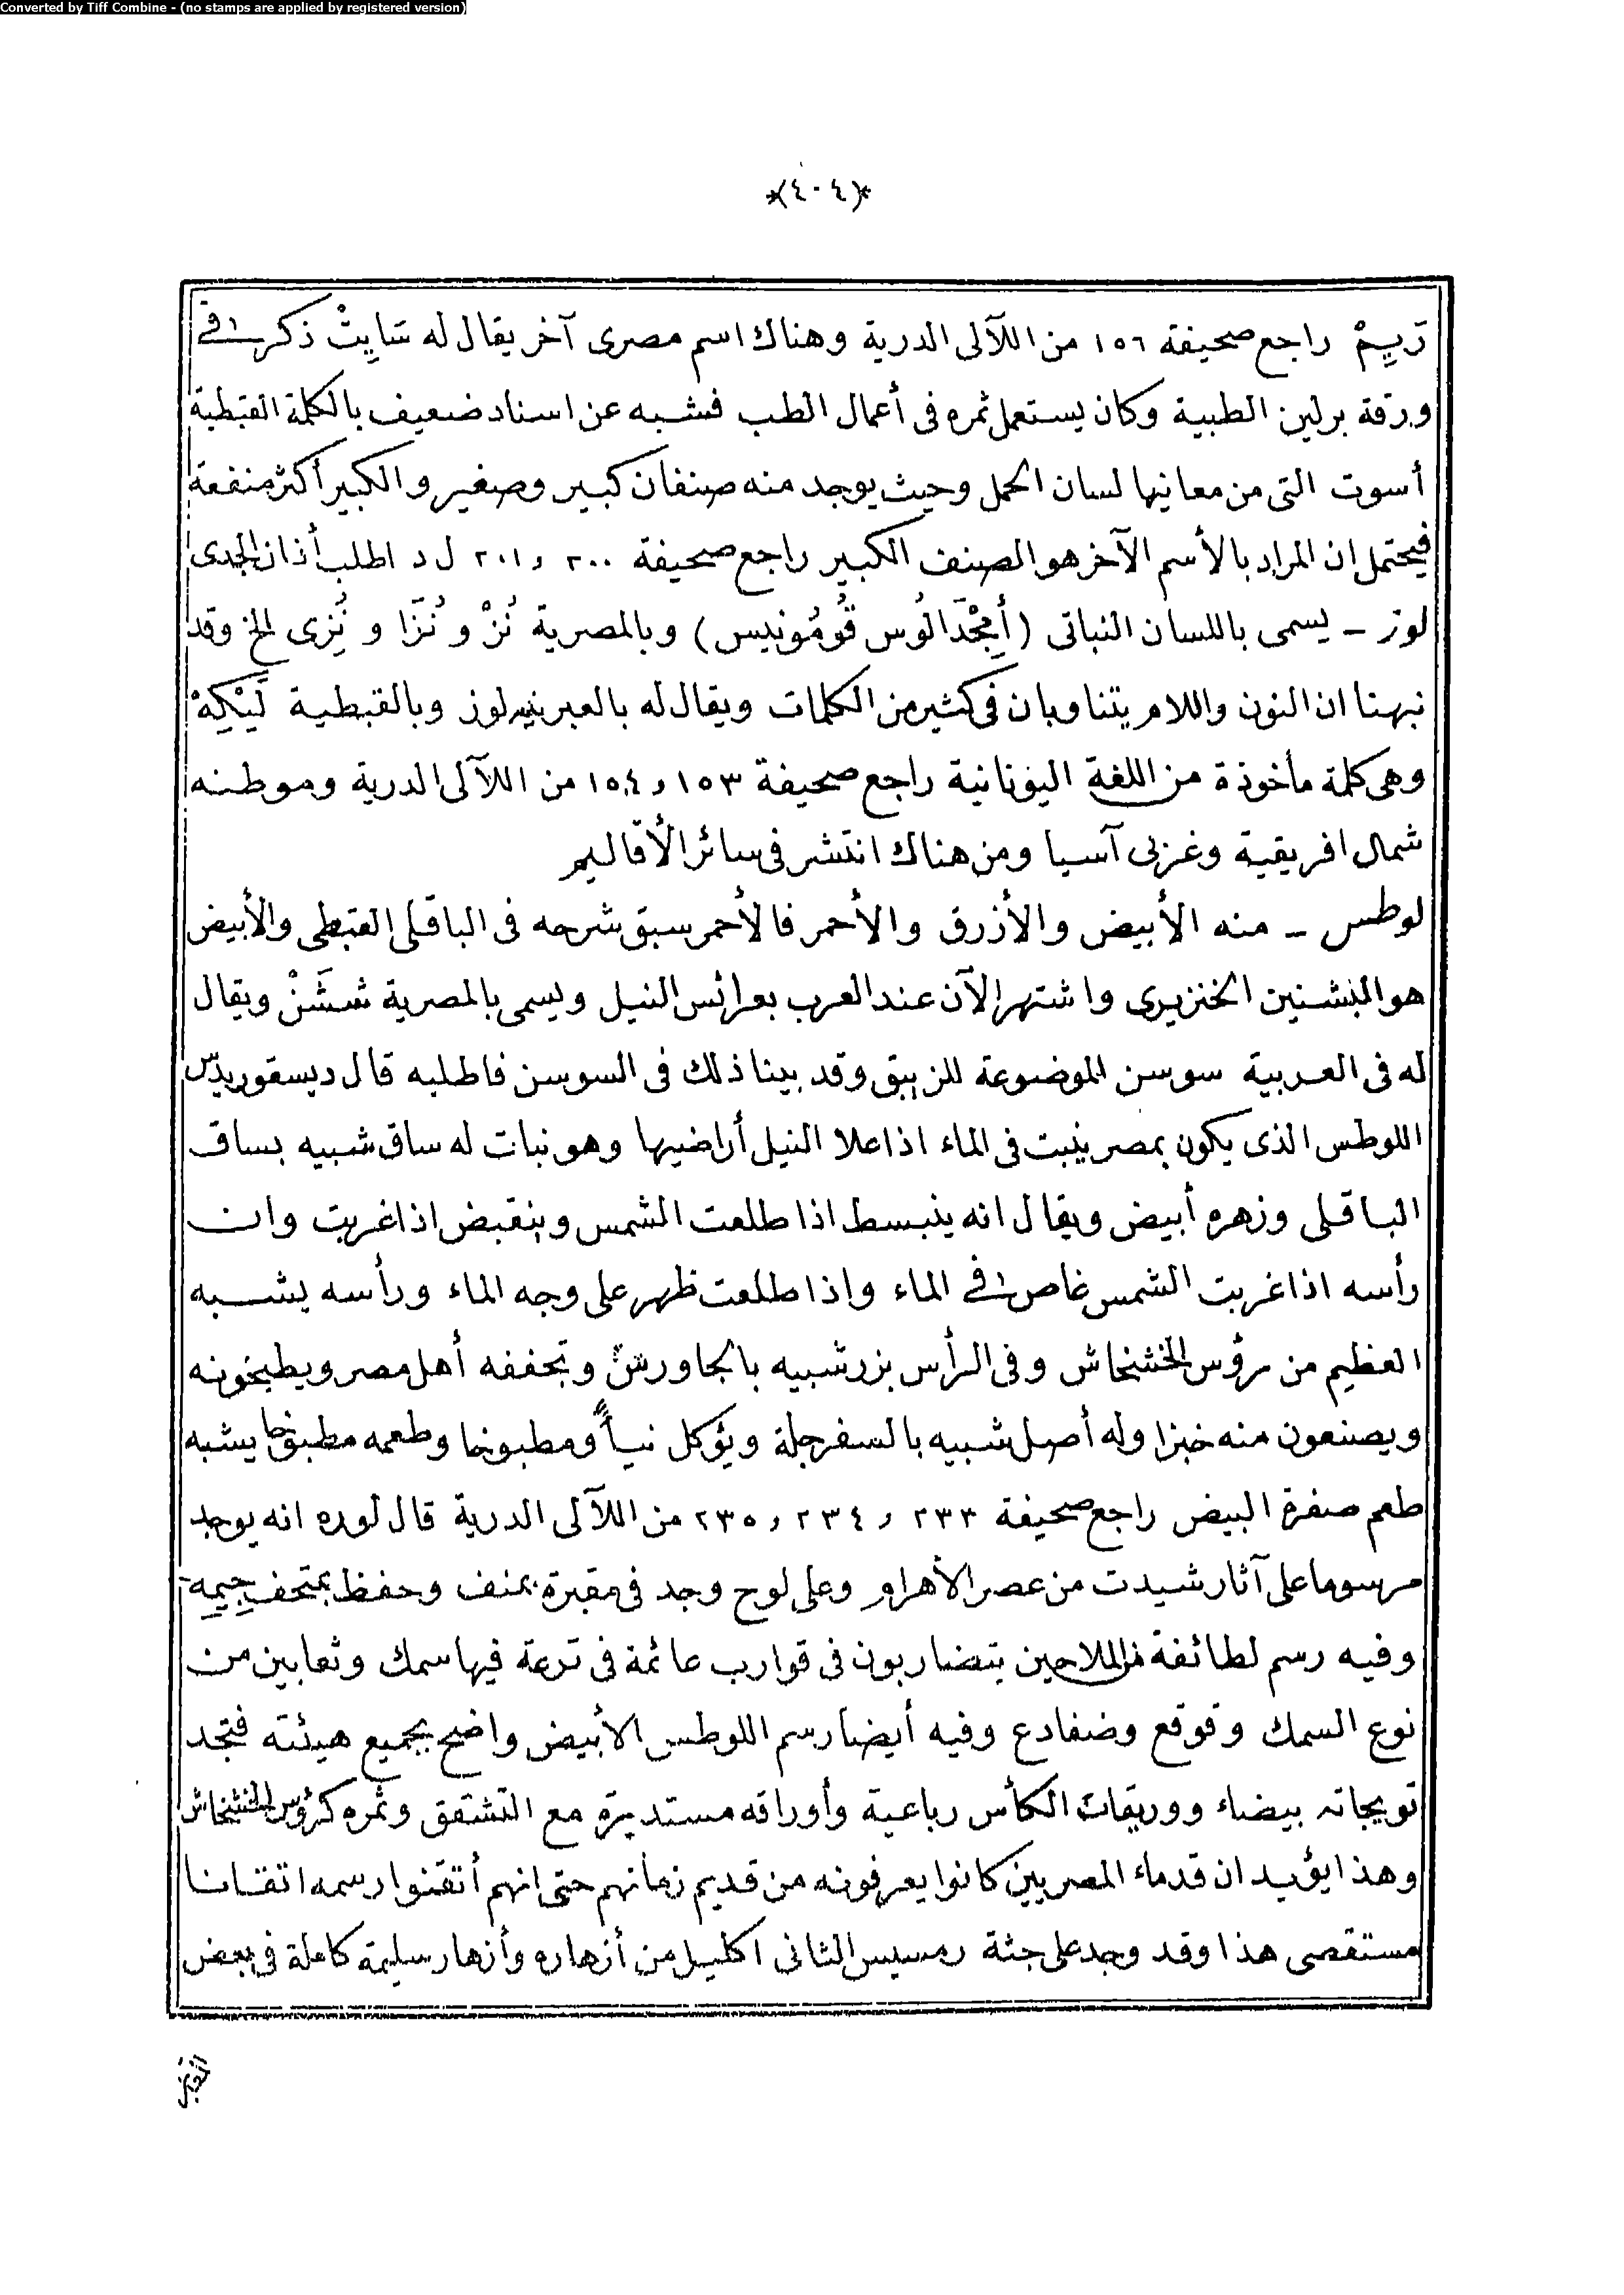 Converted by Tiff Combine - (no stamps are applied by registered version)
*(٤٠٤)*
رَيِمْ راجع صحيفة ١٥٦ من اللآلى الدرية وهناك اسم مصرى آخر يقال له سَايِتْ ذكر فى
ورقة برلين الطبية وكان يستعمل ثمره فى أعمال الطب فشبه عن اسناد ضعيف بالكلمة القبطية
أسوت التى من معانيها لسان الحمل وحيث يوجد منه صنفان كبير وصغير والكبير أكثر منفعة
فيحتمل ان المراد بالأسم الآخر هو الصنف الكبير راجع صحيفة ٢٠٠ و ٢٠١ ل د اطلب أذان الجدى
لوز ــ يسمى باللسان النباتى (أَمِجْدَالُوس قُومُونيس) وبالمصرية نُزْ و نُزَا و نُزِى الخ وقد
نبهنا ان النون واللام يتناوبان فى كثير من الكلمات ويقال له بالعبرنيه لوز وبالقبطية لَيْكِهْ
وهى كلمة مأخوذة من اللغة اليونانية راجع صحيفة ١٥٣ و ١٥٤ من اللآلى الدرية وموطنه
شمال افريقية وغربى آسيا ومن هناك انتشر فى سائر الأقاليم
لوطس ــ منه الأبيض والأزرق والأحمر فالأحمر سبق شرحه فى الباقلى القبطى والأبيض
هو البشنين الخنزيرى واشتهر الآن عند العرب بعرائس النيل ويسمى بالمصرية شَشَنْ ويقال
له فى العربية سوسن الموضوعة للزنبق وقد بينا ذلك فى السوسن فاطلبه قال ديسقوريدس
اللوطس الذى يكون بمصر ينبت فى الماء اذا علا النيل أراضيها وهو نبات له ساق شبيه بساق
الباقلى وزهره أبيض ويقال انه ينبسط اذا طلعت الشمس وينقبض اذا غربت وان
رأسه اذا غربت الشمس غاص فى الماء واذا طلعت ظهر على وجه الماء ورأسه يشبه
العظيم من رؤس الخشخاش وفى الرأس بزر شبيه بالجاورش وتجففه أهل مصر ويطبخونه
ويصنعون منه خبزا وله أصل شبيه بالسفرجلة ويؤكل نيأ ومطبوخا وطعمه مطبوخا يشبه
طعم صفرة البيض راجع صحيفة ٢٣٣ و ٢٣٤ و ٢٣٥ من اللآلى الدرية قال لوره انه يوجد
مرسوما على آثار شيدت من عصر الأهرام وعلى لوح وجد فى مقبرة بمنف وحفظ بمتحف جيمه
وفيه رسم لطائفة من الملاحين يتضاربون فى قوارب عائمة فى ترعة فيها سمك وثعابين من
نوع السمك وقوقع وضفادع وفيه أيضا رسم اللوطس الأبيض واضح بجميع هيئته فتجد
تويجاته بيضاء ووريقات الكأس رباعية وأوراقه مستديرة مع التشقق وثمره كرؤس الخشخاش
وهذا يؤيد ان قدماء المصريين كانوا يعرفونه من قديم زمانهم حتى انهم أتقنوا رسمه اتقانا
مستقصى هذا وقد وجد على جثة رمسيس الثانى اكليل من أزهاره وأزهار سليمة كاملة فى بعض